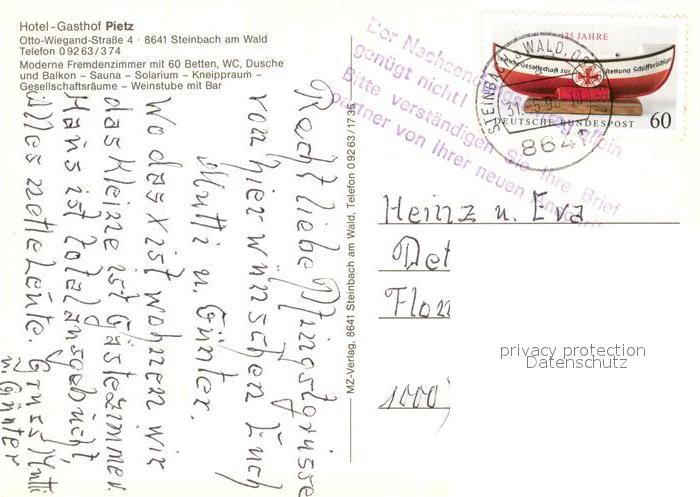 Hotel-Gasthof Pietz
Otto-Wiegand-Straße 4 · 8641 Steinbach am Wald
Telefon 09263/374
Moderne Fremdenzimmer mit 60 Betten, WC, Dusche
und Balkon – Sauna – Solarium – Kneippraum –
Gesellschaftsräume – Weinstube mit Bar
Recht liebe Pfingstgrüsse
von hier wünschen Euch
Mutti u. Günter.
Wo das x ist wohnen wir
das kleine ist Gästezimmer
Haus ist total ausgebucht
alles nette Leute. Gruss Mutti
u. Günter
MZ-Verlag, 8641 Steinbach am Wald, Telefon 09263/1735
Der Nachsendeantrag allein
genügt nicht!
Bitte verständigen Sie Ihre Brief
partner von Ihrer neuen
125 JAHRE
Deutsche Gesellschaft zur Rettung Schiffbrüchiger
DEUTSCHE BUNDESPOST 60
STEINBACH a WALD
31.-5.90
8641
Heinz u. Eva
Det
Flor
1000
privacy protection
Datenschutz